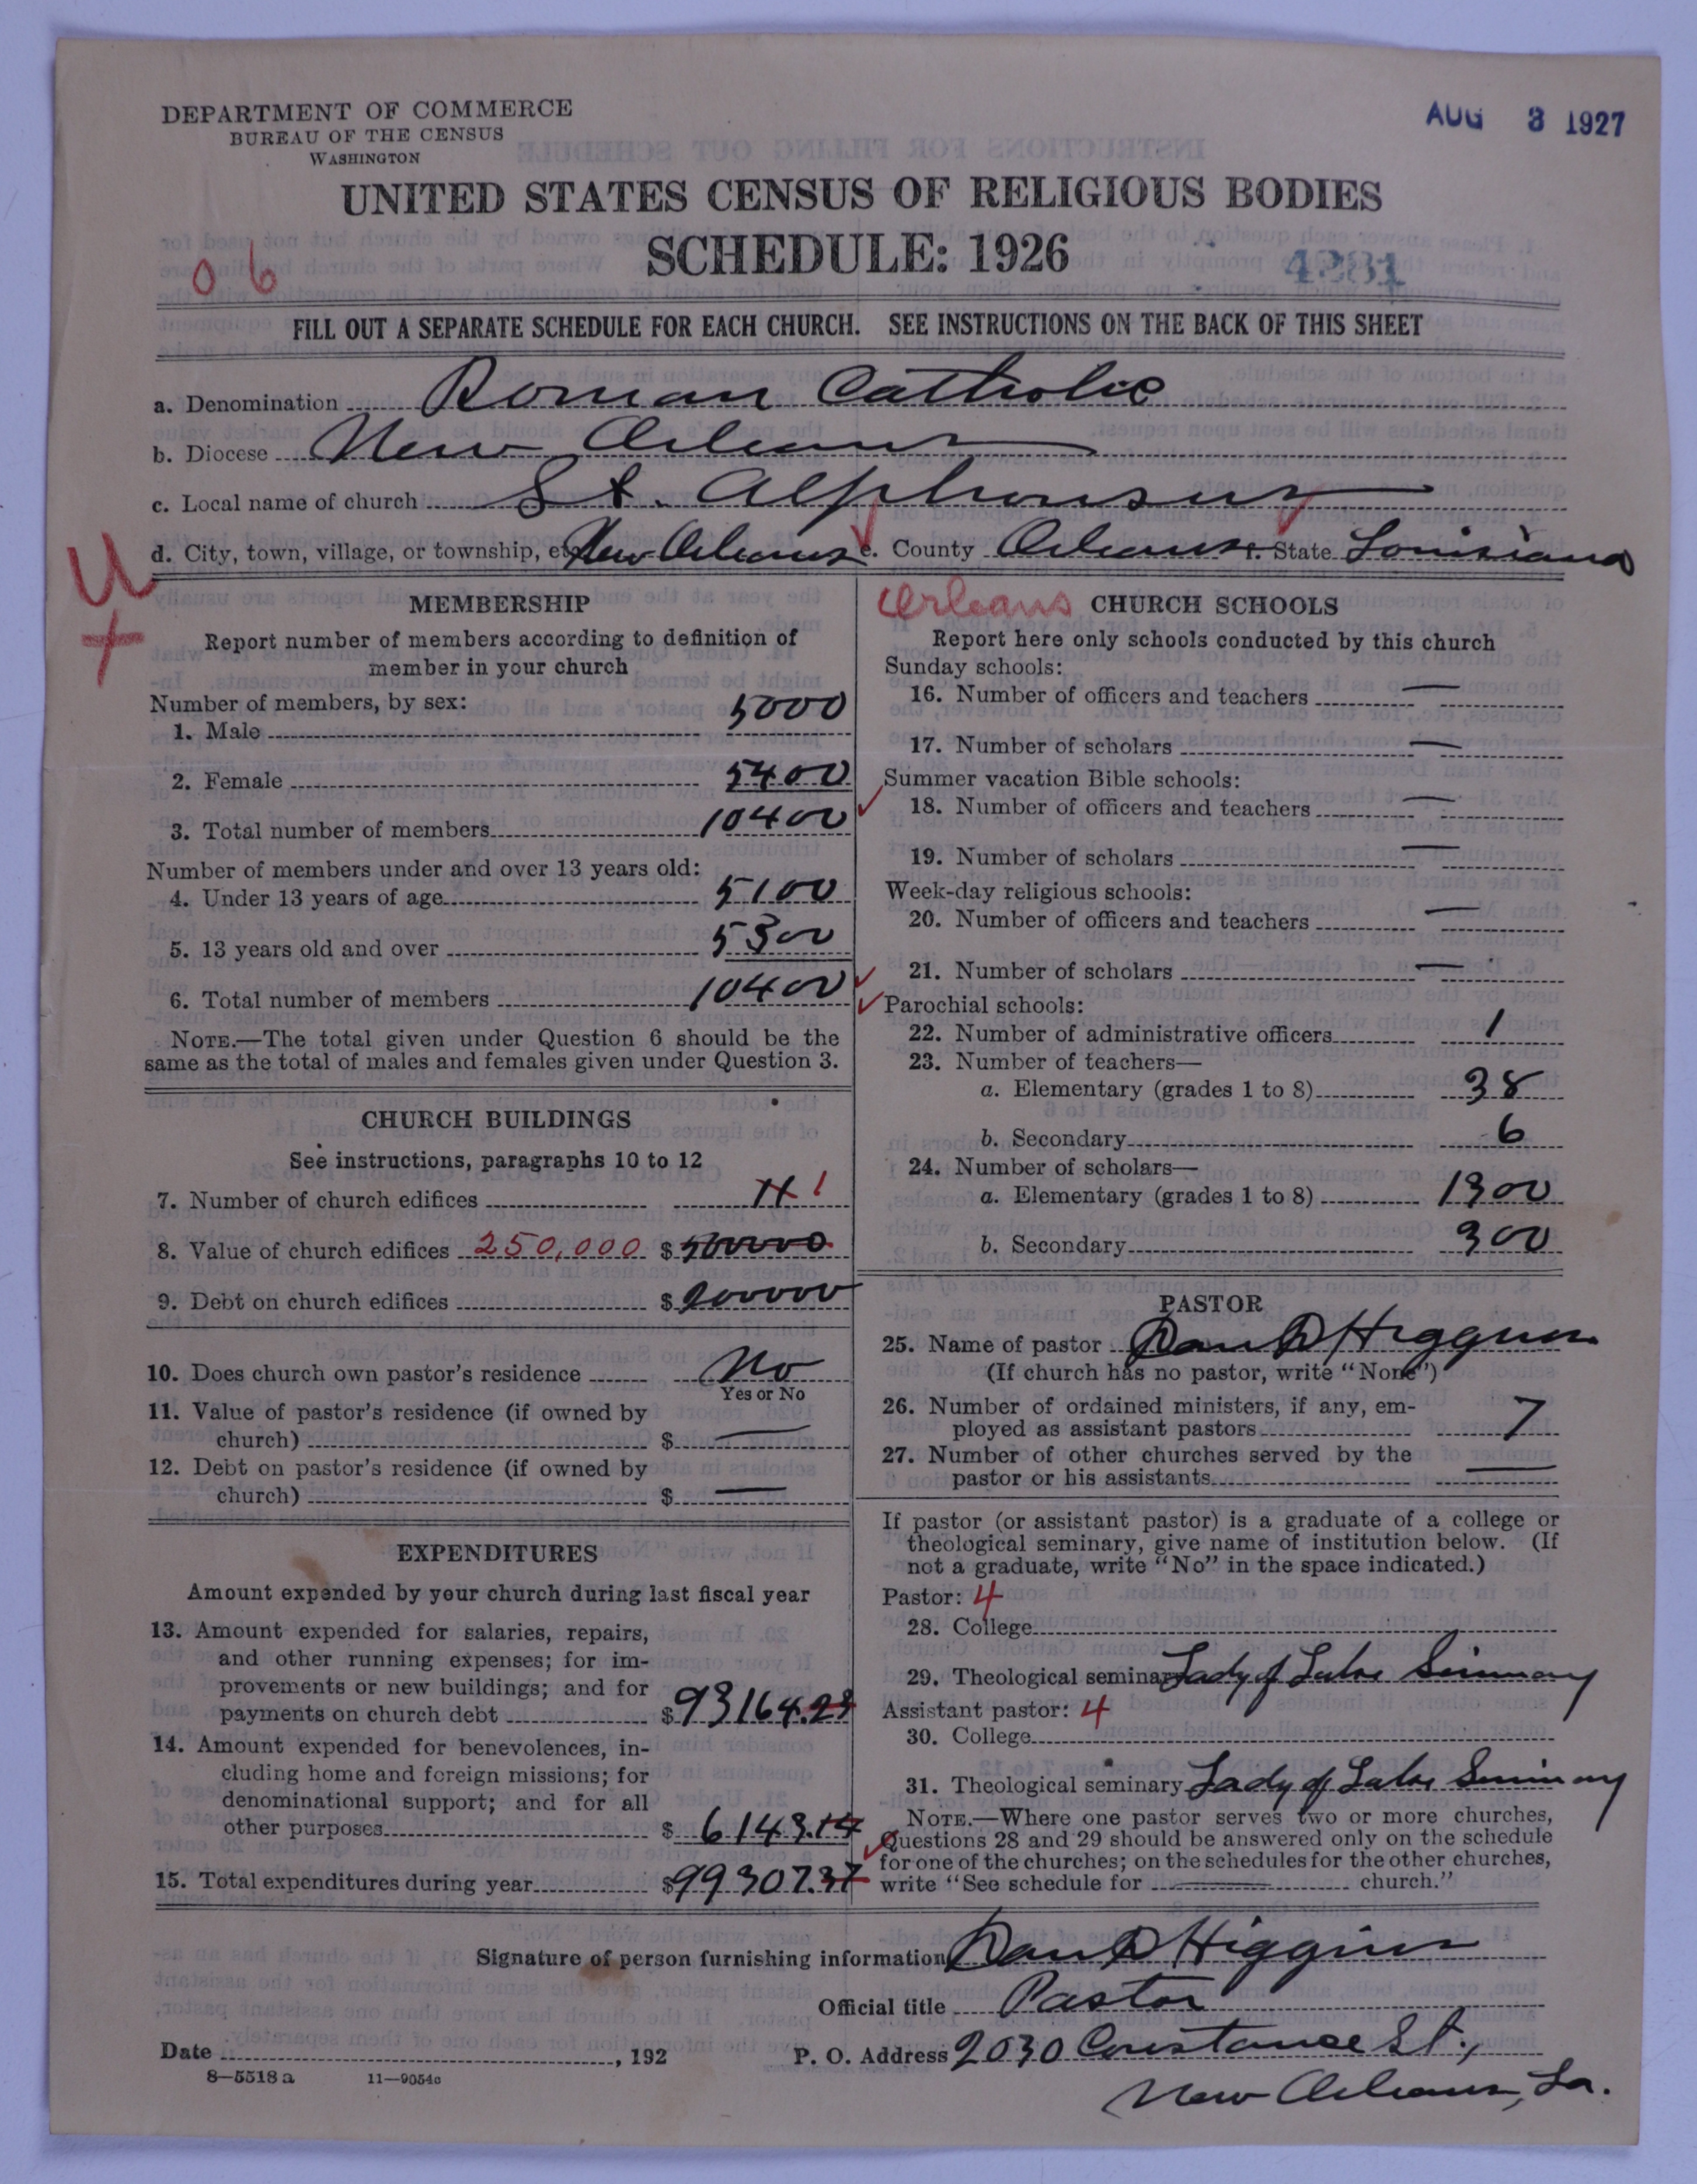 DEPARTMENT OF COMMERCE
BUREAU OF THE CENSUS
WASHINGTON
AUG 3 1927
UNITED STATES CENSUS OF RELIGIOUS BODIES
SCHEDULE: 1926
06
4281
FILL OUT A SEPARATE SCHEDULE FOR EACH CHURCH. SEE INSTRUCTIONS ON THE BACK OF THIS SHEET
a. Denomination Roman Catholic
b. Diocese New Orleans
c. Local name of church St. Alphonsus
d. City, town, village, or township, etc. New Orleans e. County Orleans f. State Louisiana
U
+
MEMBERSHIP
Report number of members according to definition of
member in your church
Number of members, by sex:
1. Male 5000
2. Female 5400
3. Total number of members 10400
Number of members under and over 13 years old:
4. Under 13 years of age 5100
5. 13 years old and over 5300
6. Total number of members 10400
NOTE.—The total given under Question 6 should be the
same as the total of males and females given under Question 3.
CHURCH BUILDINGS
See instructions, paragraphs 10 to 12
7. Number of church edifices 1
8. Value of church edifices 250,000 $500000
9. Debt on church edifices $200000
10. Does church own pastor's residence No
Yes or No
11. Value of pastor's residence (if owned by
church) $ —
12. Debt on pastor's residence (if owned by
church) $ —
EXPENDITURES
Amount expended by your church during last fiscal year
13. Amount expended for salaries, repairs,
and other running expenses; for im-
provements or new buildings; and for
payments on church debt $93164.23
14. Amount expended for benevolences, in-
cluding home and foreign missions; for
denominational support; and for all
other purposes $6143.14
15. Total expenditures during year $99307.37
Orleans
CHURCH SCHOOLS
Report here only schools conducted by this church
Sunday schools:
16. Number of officers and teachers —
17. Number of scholars —
Summer vacation Bible schools:
18. Number of officers and teachers —
19. Number of scholars —
Week-day religious schools:
20. Number of officers and teachers —
21. Number of scholars —
Parochial schools:
22. Number of administrative officers 1
23. Number of teachers—
a. Elementary (grades 1 to 8) 38
b. Secondary 6
24. Number of scholars—
a. Elementary (grades 1 to 8) 1300
b. Secondary 300
PASTOR
25. Name of pastor Dan D Higgins
(If church has no pastor, write "None")
26. Number of ordained ministers, if any, em-
ployed as assistant pastors 7
27. Number of other churches served by the
pastor or his assistants —
If pastor (or assistant pastor) is a graduate of a college or
theological seminary, give name of institution below. (If
not a graduate, write "No" in the space indicated.)
Pastor: 4
28. College
29. Theological seminary Lady of Lake Seminary
Assistant pastor: 4
30. College
31. Theological seminary Lady of Lake Seminary
NOTE.—Where one pastor serves two or more churches,
Questions 28 and 29 should be answered only on the schedule
for one of the churches; on the schedules for the other churches,
write "See schedule for church."
Signature of person furnishing information Dan D Higgins
Official title Pastor
Date , 192
P. O. Address 2030 Constance St.,
New Orleans, La.
8—5518 a 11—9054c